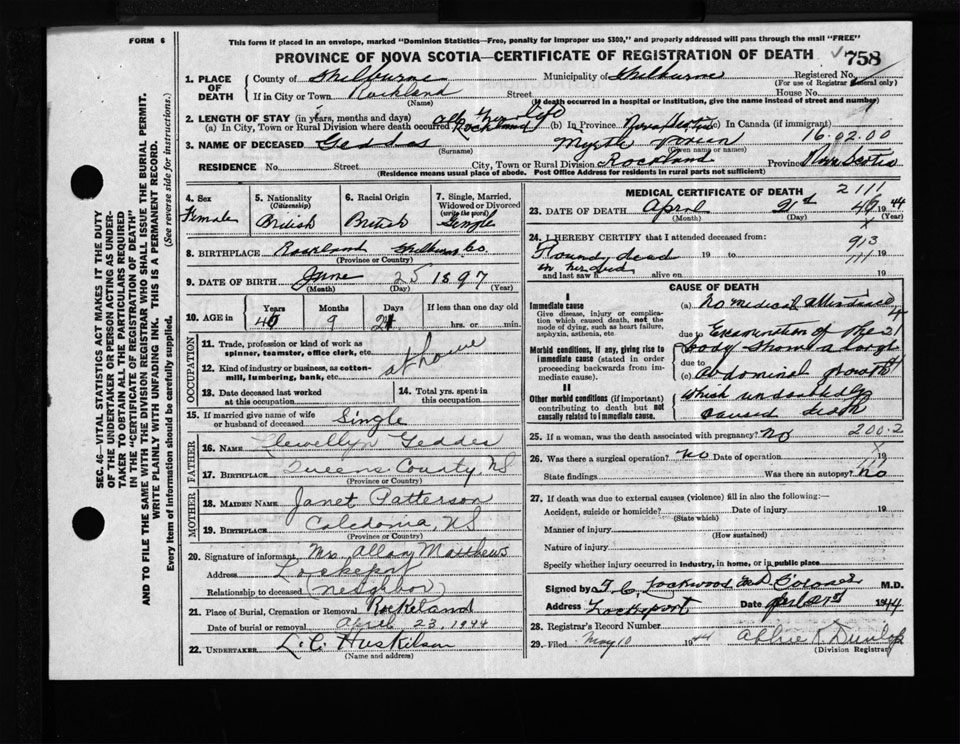 FORM 6
This form if placed in an envelope, marked "Dominion Statistics—Free, penalty for improper use $300," and properly addressed will pass through the mail "FREE"
PROVINCE OF NOVA SCOTIA—CERTIFICATE OF REGISTRATION OF DEATH
758
1. PLACE OF DEATH
County of Shelburne Municipality of Shelburne Registered No.
(For use of Registrar General only)
If in City or Town Rockland Street House No.
(Name) (If death occurred in a hospital or institution, give the name instead of street and number)
2. LENGTH OF STAY (in years, months and days)
(a) In City, Town or Rural Division where death occurred All her life Rockland (b) In Province Nova Scotia (c) In Canada (if immigrant)
16.02.00
3. NAME OF DECEASED Geddes Myrtle
(Surname) (Given name or names)
RESIDENCE No. Street City, Town or Rural Division Rockland Province Nova Scotia
(Residence means usual place of abode. Post Office Address for residents in rural parts not sufficient)
4. Sex Female
5. Nationality (Citizenship) British
6. Racial Origin British
7. Single, Married, Widowed or Divorced (write the word) Single
8. BIRTHPLACE Rockland Shelburne Co.
(Province or Country)
9. DATE OF BIRTH June 25 1897
(Month) (Day) (Year)
10. AGE in Years Months 9 Days If less than one day
hrs. or min.
OCCUPATION
11. Trade, profession or kind of work as spinner, teamster, office clerk, etc.
at home
12. Kind of industry or business, as cotton-mill, lumbering, bank, etc.
13. Date deceased last worked at this occupation
14. Total yrs. spent in this occupation
15. If married give name of wife or husband of deceased Single
FATHER
16. NAME Llewellyn Geddes
17. BIRTHPLACE Queens County, NS
(Province or Country)
MOTHER
18. MAIDEN NAME Janet Patterson
19. BIRTHPLACE Caledonia, NS
(Province or Country)
20. Signature of informant Mrs. Allan Matthews
Address Lockeport
Relationship to deceased (neighbor)
21. Place of Burial, Cremation or Removal Rockland
Date of burial or removal April 23, 1944
22. UNDERTAKER L. C. Huskilson
(Name and address)
MEDICAL CERTIFICATE OF DEATH
2111
23. DATE OF DEATH April 21st 1944
(Month) (Day) (Year)
24. I HEREBY CERTIFY that I attended deceased from:
Found dead 19 to 19
in her bed
and last saw h alive on 19
913
111
CAUSE OF DEATH
I
Immediate cause
Give disease, injury or complication which caused death, not the mode of dying, such as heart failure, asphyxia, asthenia, etc
(a) No medical attendance
due to Examination of the
Morbid conditions, if any, giving rise to immediate cause (stated in order proceeding backwards from immediate cause).
body shows a large
due to
(c) abdominal growth
II
Other morbid conditions (if important) contributing to death but not causally related to immediate cause.
which undoubtedly
caused death
25. If a woman, was the death associated with pregnancy? No
200.2
26. Was there a surgical operation? No Date of operation 19
State findings Was there an autopsy? No
27. If death was due to external causes (violence) fill in also the following:—
Accident, suicide or homicide? Date of injury 19
(State which)
Manner of injury
(How sustained)
Nature of injury
Specify whether injury occurred in industry, in home, or in public place
Signed by Lockwood Coroner M.D.
Address Lockeport Date 1944
28. Registrar's Record Number
29. Filed May 10 1944 Dunlop
(Division Registrar)
SEC. 46—VITAL STATISTICS ACT MAKES IT THE DUTY
OF THE UNDERTAKER OR PERSON ACTING AS UNDER-
TAKER TO OBTAIN ALL THE PARTICULARS REQUIRED
IN THE "CERTIFICATE OF REGISTRATION OF DEATH"
AND TO FILE THE SAME WITH THE DIVISION REGISTRAR WHO SHALL ISSUE THE BURIAL PERMIT.
WRITE PLAINLY WITH UNFADING INK. THIS IS A PERMANENT RECORD.
Every item of information should be carefully supplied. (See reverse side for instructions.)